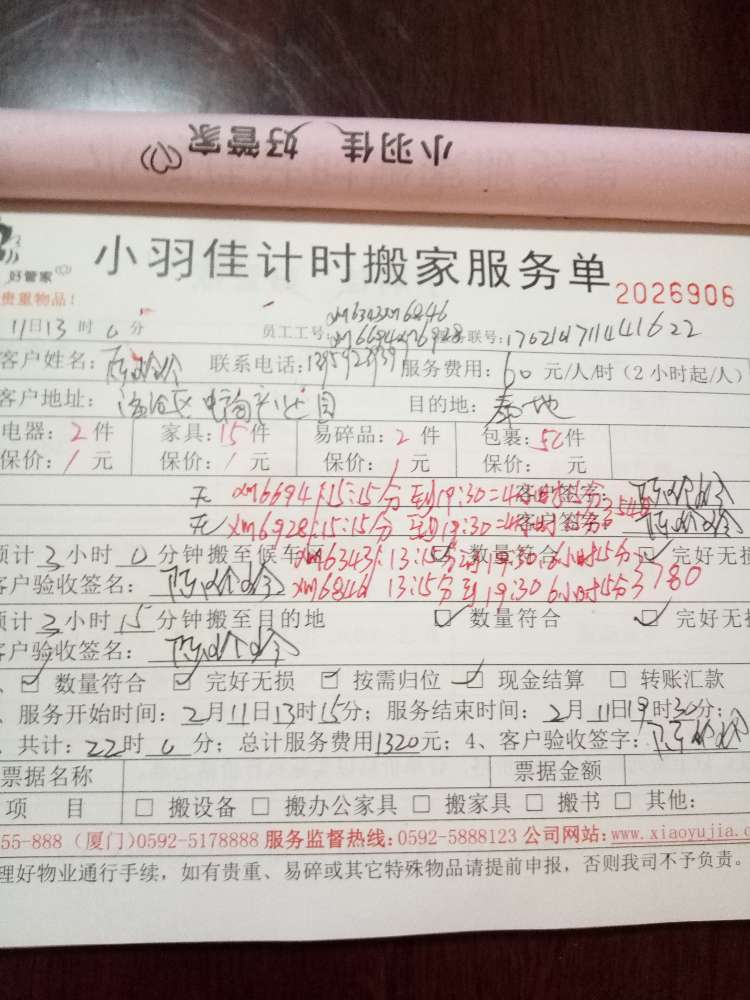 小羽佳 好管家
小羽佳计时搬家服务单
好管家
2026906
贵重物品！
11日13时0分 员工工号: xm6343 xm6846 xm6694 xm6928 务联号: 1702101711441622
客户姓名: 联系电话: 服务费用: 60元/人/时（2小时起/人）
客户地址: 目的地:
电器: 2件 家具: 15件 易碎品: 2件 包裹: 50件
保价: / 元 保价: / 元 保价: / 元 保价: / 元
无 xm6694:15:15分到19:30=4小时15分 客户签字:
无 xm6928:15:15分到19:30=4小时15分 客户签名
预计3小时0分钟搬至候车 数量符合 完好无损
xm6343:13:15分到19:30.6小时15分
客户验收签名: xm6846 13:15分到19:30 6小时15分 3780
预计3小时15分钟搬至目的地 数量符合 完好无损
客户验收签名:
数量符合 完好无损 按需归位 现金结算 转账汇款
服务开始时间: 2月11日13时15分; 服务结束时间: 2月11日19时30分;
共计: 22时0分; 总计服务费用1320元; 4、客户验收签字:
票据名称 票据金额
项 目 搬设备 搬办公家具 搬家具 搬书 其他:
55-888（厦门）0592-5178888 服务监督热线: 0592-5888123 公司网站: www.xiaoyujia.com
理好物业通行手续, 如有贵重、易碎或其它特殊物品请提前申报, 否则我司不予负责。